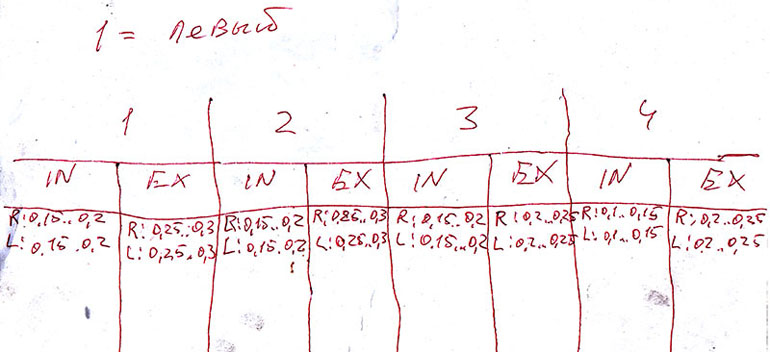 1 = левый
1 2 3 4
IN EX IN EX IN EX IN EX
R: 0,15..0,2 R: 0,25..0,3 R: 0,15..0,2 R: 0,25..0,3 R: 0,15..0,2 R: 0,2..0,25 R: 0,1..0,15 R: 0,2..0,25
L: 0,15..0,2 L: 0,25..0,3 L: 0,15..0,2 L: 0,25..0,3 L: 0,15..0,2 L: 0,2..0,25 L: 0,1..0,15 L: 0,2..0,25